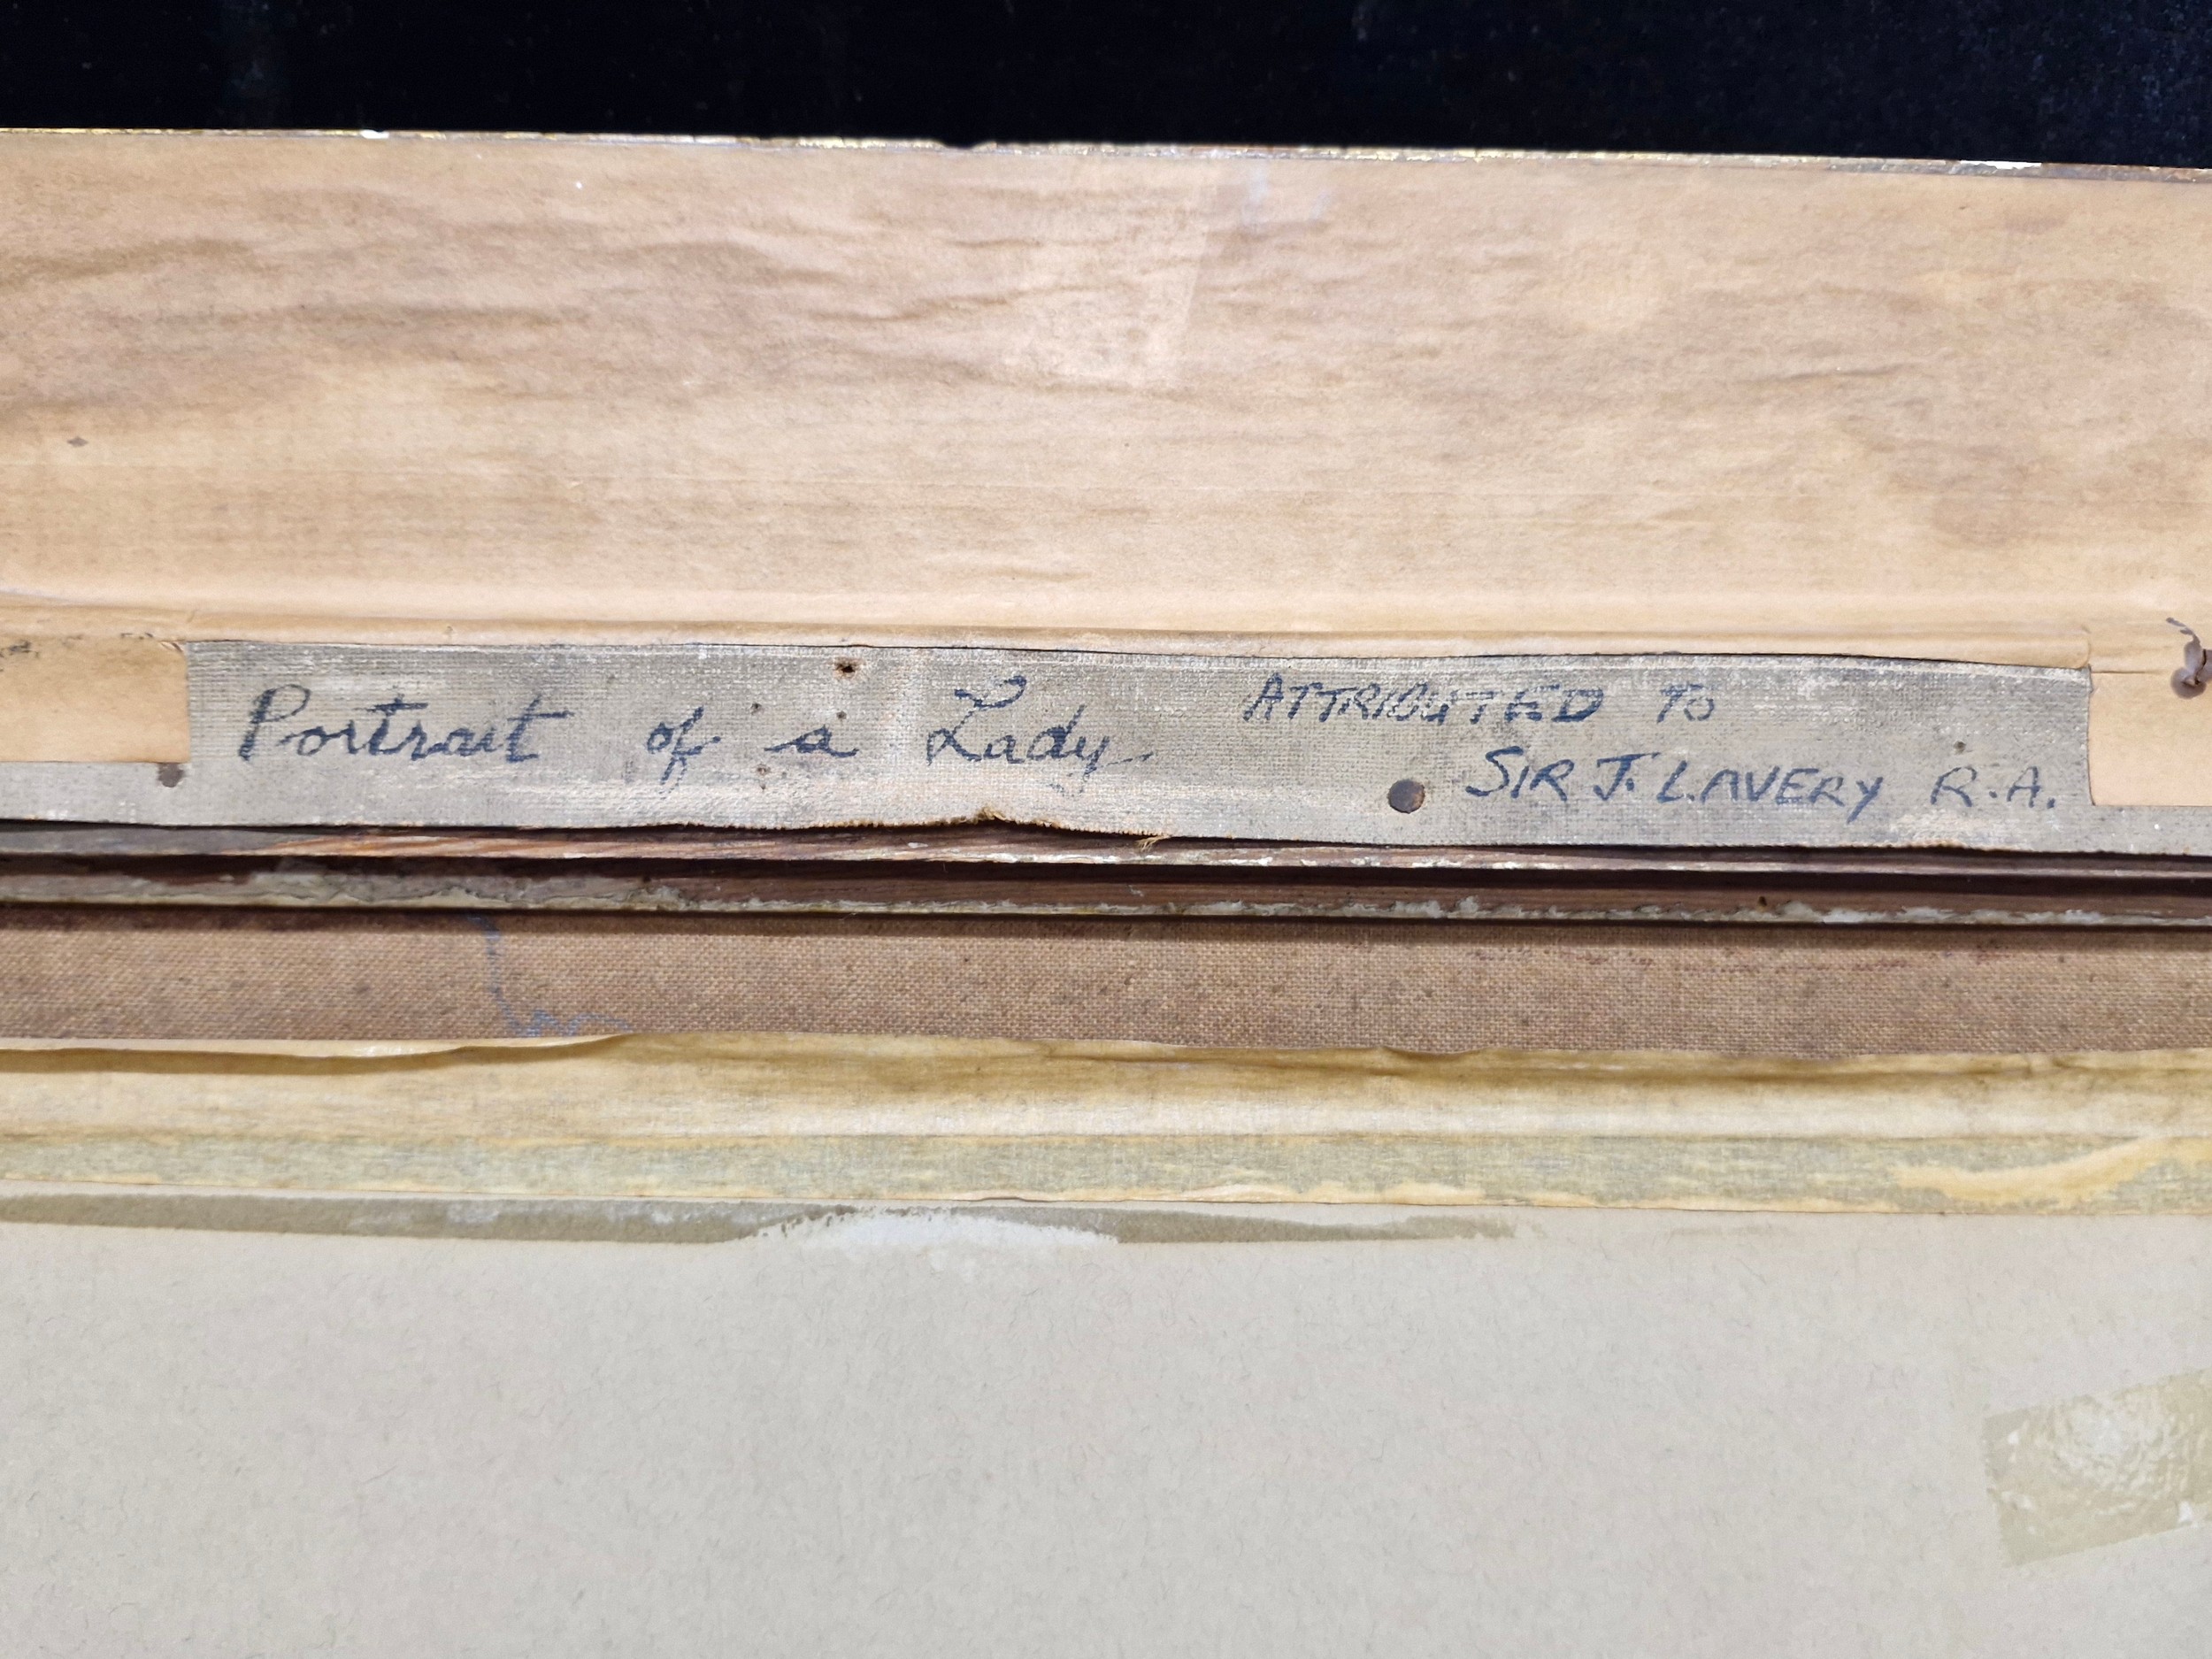 Portrait of a Lady
ATTRIBUTED TO
SIR J. LAVERY R.A.